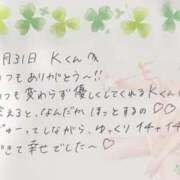 月31日 Kくん
つもありがとう〜!!
つも変わらず優しくしてくれるKくん
会えると、なんだかほっとするの♡♡
ぎゅーってしながら、ゆっくりイチャイチ
きて幸せでした〜♡